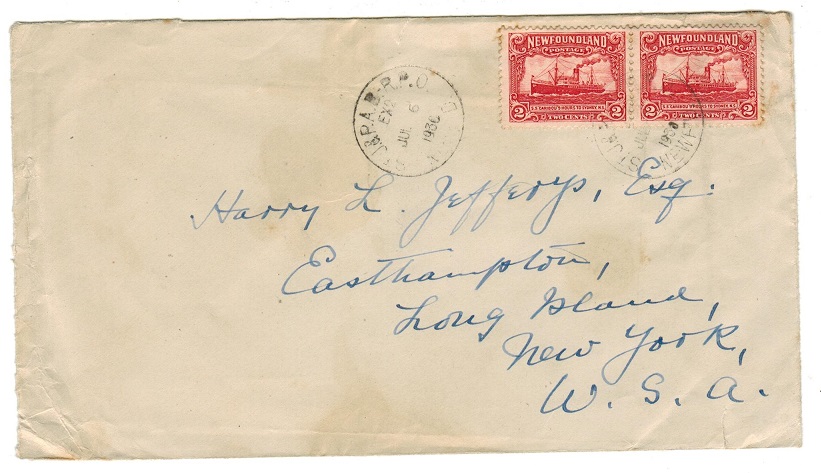 NEWFOUNDLAND
POSTAGE
S.S. CARIBOU 9 HOURS TO SYDNEY N.S.
2 TWO CENTS 2
NEWFOUNDLAND
POSTAGE
S.S. CARIBOU 9 HOURS TO SYDNEY N.S.
2 TWO CENTS 2
J. & P.A.B.-R.P.O.
JUL 6
1930
1930
Harry L. Jefferys, Esq.
Easthampton,
Long Island,
New York,
U. S. A.